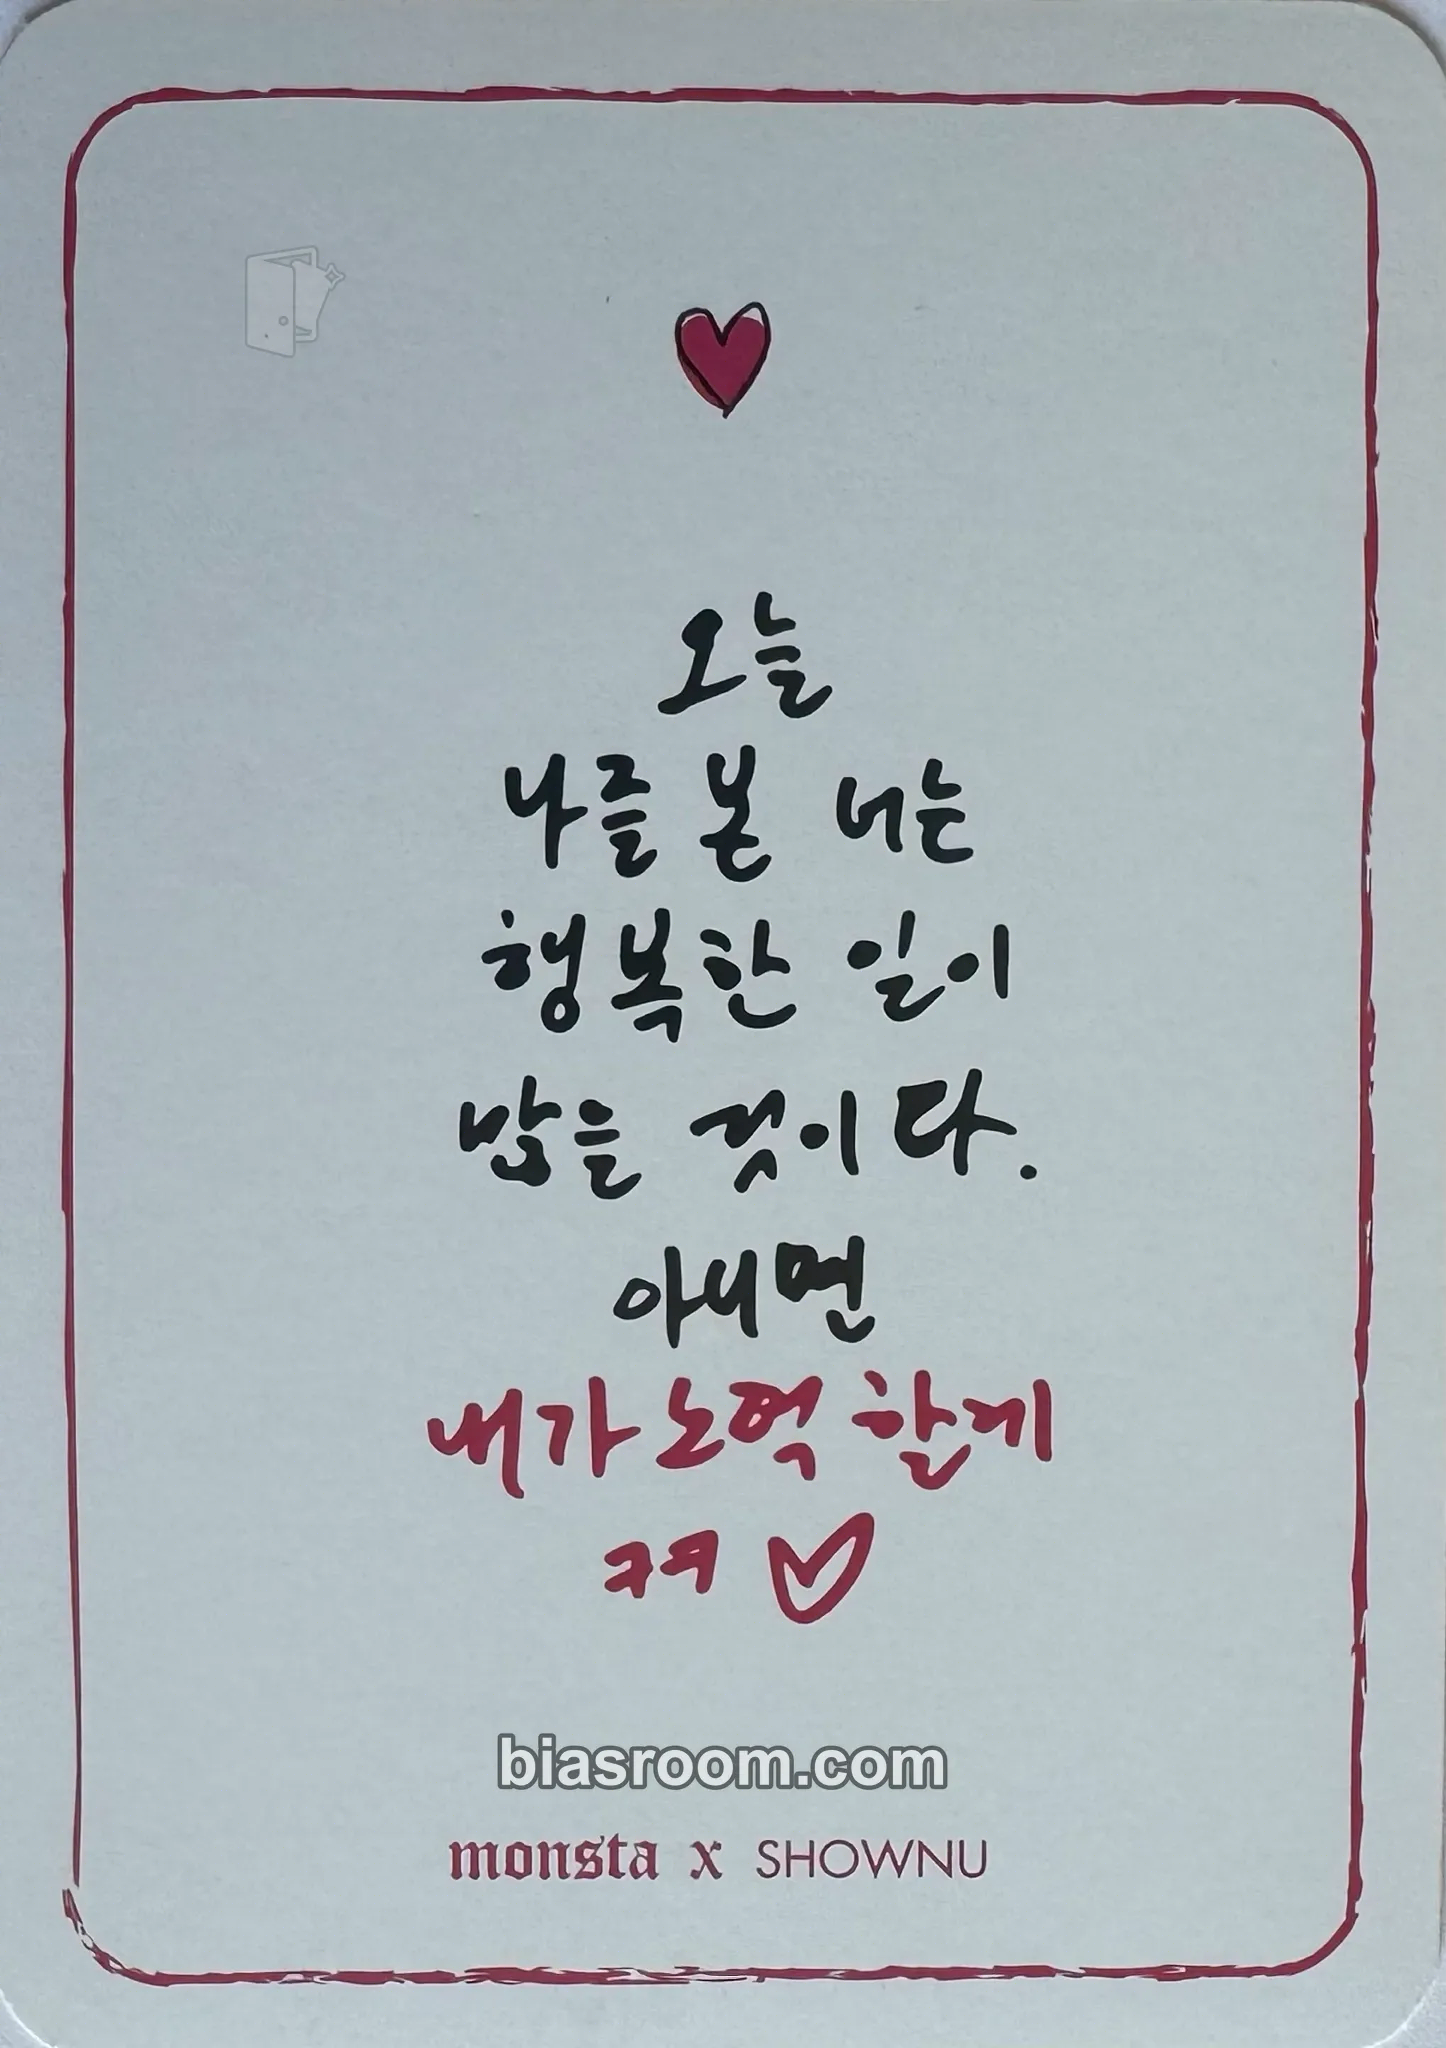 오늘
나를 본 너는
행복한 일이
많을 것이다.
아니면
내가 노력 할게
ㅋㅋ ♡
biasroom.com
monsta x SHOWNU